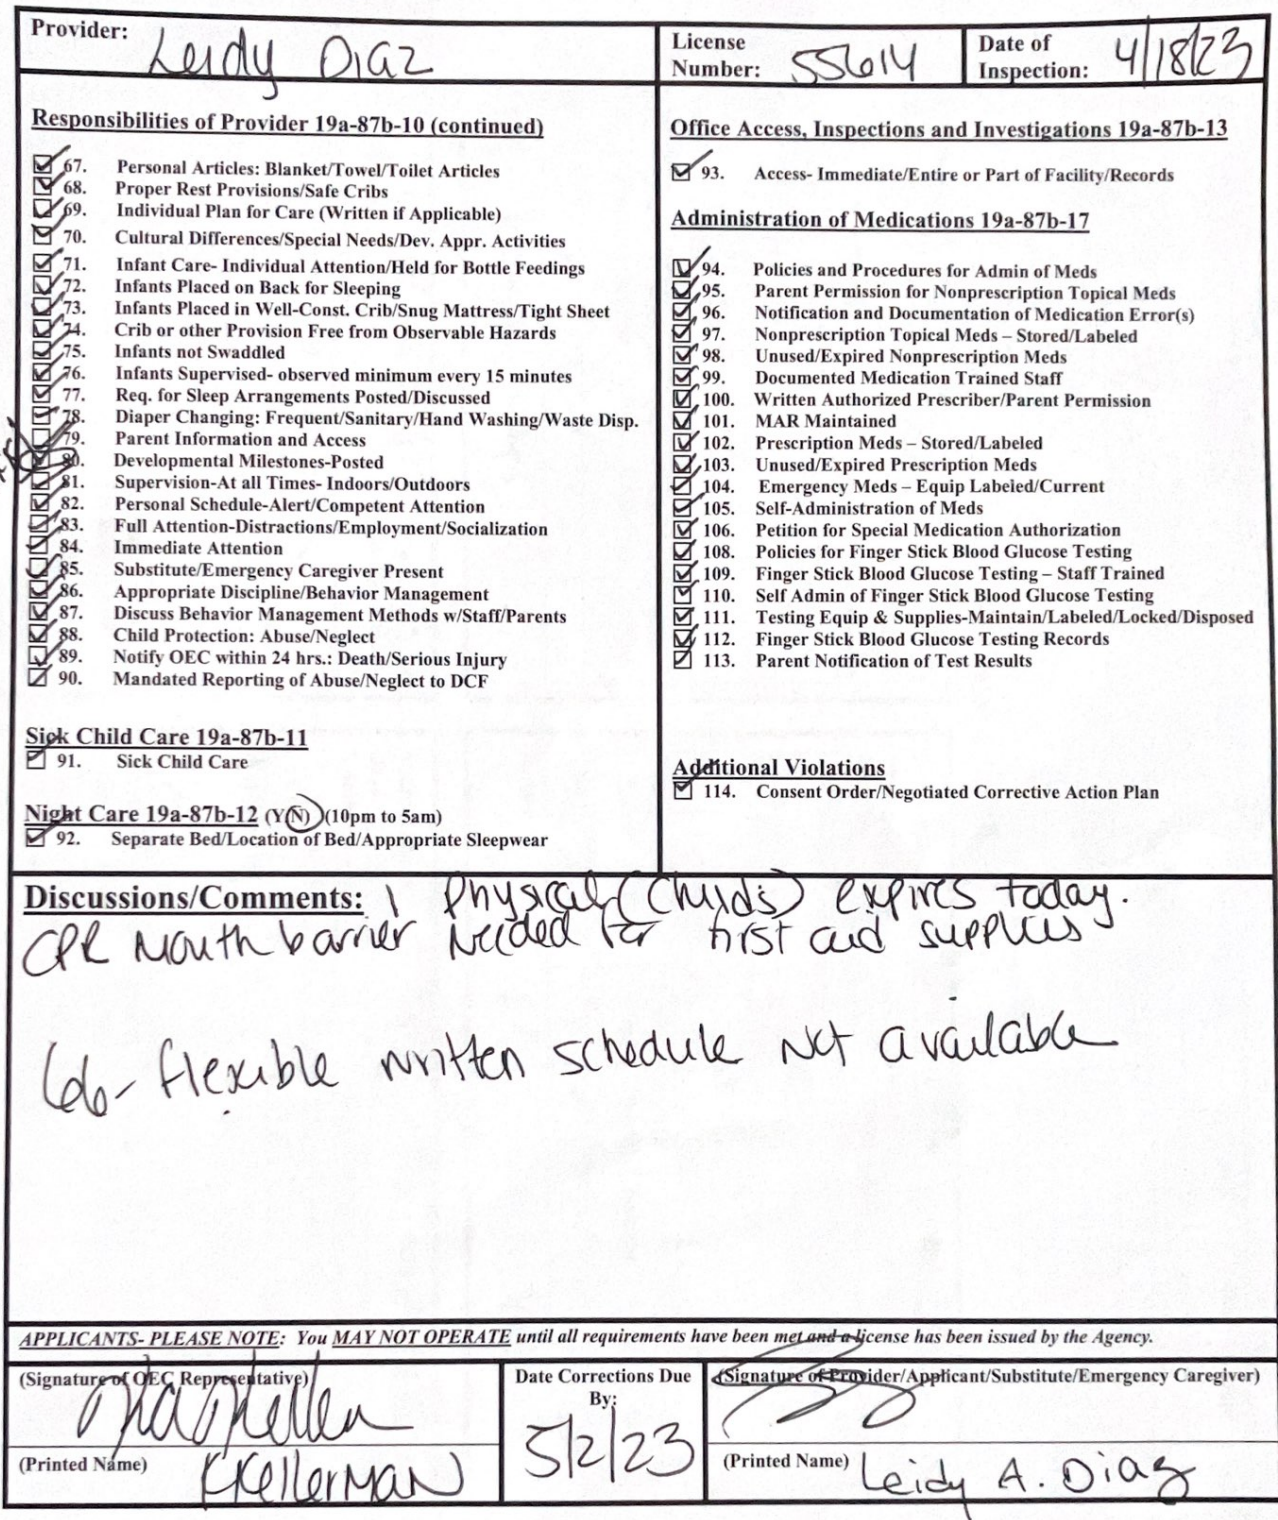 Provider: Leidy Diaz
License Number: 55614
Date of Inspection: 4/18/23
Responsibilities of Provider 19a-87b-10 (continued)
67. Personal Articles: Blanket/Towel/Toilet Articles
68. Proper Rest Provisions/Safe Cribs
69. Individual Plan for Care (Written if Applicable)
70. Cultural Differences/Special Needs/Dev. Appr. Activities
71. Infant Care- Individual Attention/Held for Bottle Feedings
72. Infants Placed on Back for Sleeping
73. Infants Placed in Well-Const. Crib/Snug Mattress/Tight Sheet
74. Crib or other Provision Free from Observable Hazards
75. Infants not Swaddled
76. Infants Supervised- observed minimum every 15 minutes
77. Req. for Sleep Arrangements Posted/Discussed
78. Diaper Changing: Frequent/Sanitary/Hand Washing/Waste Disp.
79. Parent Information and Access
80. Developmental Milestones-Posted
81. Supervision-At all Times- Indoors/Outdoors
82. Personal Schedule-Alert/Competent Attention
83. Full Attention-Distractions/Employment/Socialization
84. Immediate Attention
85. Substitute/Emergency Caregiver Present
86. Appropriate Discipline/Behavior Management
87. Discuss Behavior Management Methods w/Staff/Parents
88. Child Protection: Abuse/Neglect
89. Notify OEC within 24 hrs.: Death/Serious Injury
90. Mandated Reporting of Abuse/Neglect to DCF
Sick Child Care 19a-87b-11
91. Sick Child Care
Night Care 19a-87b-12 (Y/N) (10pm to 5am)
92. Separate Bed/Location of Bed/Appropriate Sleepwear
Office Access, Inspections and Investigations 19a-87b-13
93. Access- Immediate/Entire or Part of Facility/Records
Administration of Medications 19a-87b-17
94. Policies and Procedures for Admin of Meds
95. Parent Permission for Nonprescription Topical Meds
96. Notification and Documentation of Medication Error(s)
97. Nonprescription Topical Meds – Stored/Labeled
98. Unused/Expired Nonprescription Meds
99. Documented Medication Trained Staff
100. Written Authorized Prescriber/Parent Permission
101. MAR Maintained
102. Prescription Meds – Stored/Labeled
103. Unused/Expired Prescription Meds
104. Emergency Meds – Equip Labeled/Current
105. Self-Administration of Meds
106. Petition for Special Medication Authorization
108. Policies for Finger Stick Blood Glucose Testing
109. Finger Stick Blood Glucose Testing – Staff Trained
110. Self Admin of Finger Stick Blood Glucose Testing
111. Testing Equip & Supplies-Maintain/Labeled/Locked/Disposed
112. Finger Stick Blood Glucose Testing Records
113. Parent Notification of Test Results
Additional Violations
114. Consent Order/Negotiated Corrective Action Plan
Discussions/Comments: 1 Physical (Childs) expires today.
CPR Mouth barrier Needed for first aid supplies
66- flexible written schedule Not available
APPLICANTS- PLEASE NOTE: You MAY NOT OPERATE until all requirements have been met and a license has been issued by the Agency.
(Signature of OEC Representative)
(Printed Name) KKellerman
Date Corrections Due
By:
5/2/23
(Signature of Provider/Applicant/Substitute/Emergency Caregiver)
(Printed Name) Leidy A. Diaz